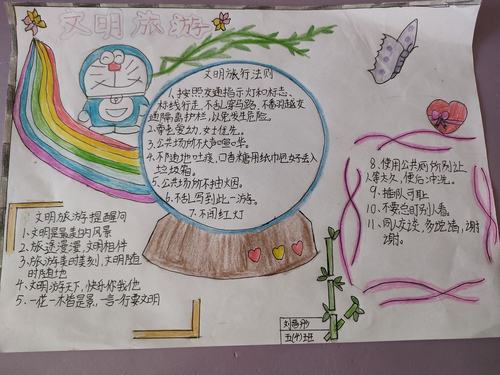 文明旅游
文明旅行法则
1、按照交通指示灯和标志、
标线行走,不乱穿马路,不翻越交
通隔离护栏,以免发生危险。
2、尊老爱幼,女士优先。
3、公共场所不大声喧哗。
4、不随地吐痰,口香糖用纸巾包好丢入
垃圾箱。
5、公共场所不抽烟。
6、不乱写到此一游。
7、不闯红灯
文明旅游提醒间
1、文明是最美的风景
2、旅途漫漫,文明相伴
3、旅游美时美刻,文明随
时随地
4、文明游天下,快乐你我他
5、一花一木皆是景,一言一行要文明
8、使用公共厕所别让
人等太久,便后冲洗。
9、插队可耻
10、不要总盯别人看。
11、同人交谈,多说请,谢
谢。
五(4)班